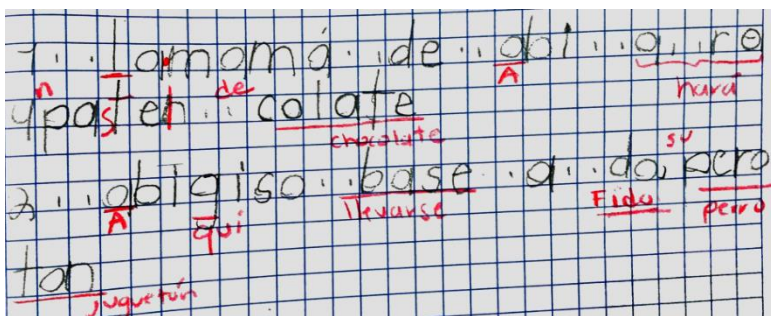 1. . lamamá. .de. .abi. .a. .re
n A hará
ypasteh. . colate
s l de chocolate
2. . abigiso. .base. a. .do, pero
A qui llevarse Fido su perro
ton
juguetón